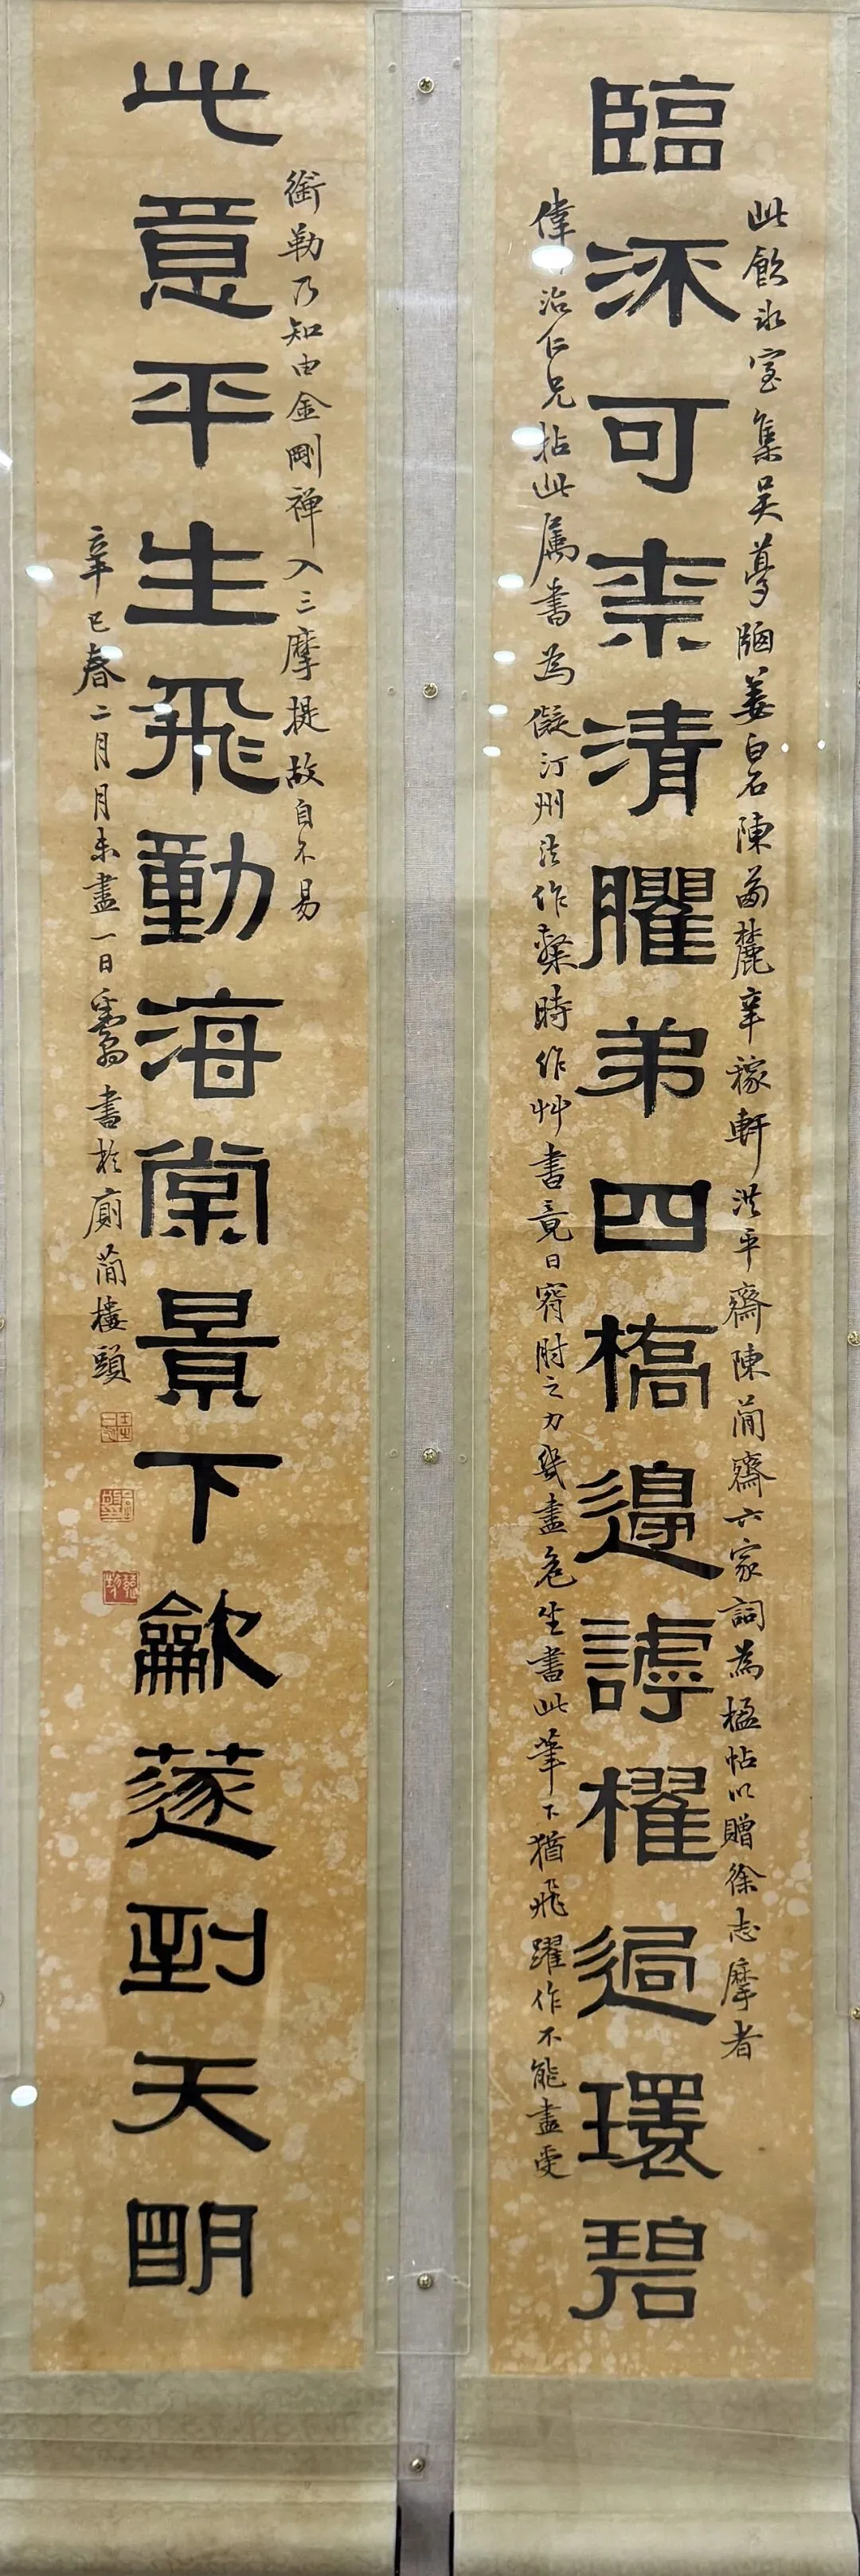 臨流可柰清臞弟四橋邊謼櫂過環碧
此飲冰室集吳夢牕姜白石陳西麓辛稼軒洪平齋陳簡齋六家詞為楹帖以贈徐志摩者
偉治仁兄拈此屬書為儗汀州法作槃時作艸書竟日窮肘之力幾盡危坐書此筆下猶飛躍作不能盡受
此意平生飛動海棠景下龡篴到天明
銜勒乃知由金剛禪入三摩提故自不易
辛巳春二月月未盡一日翁書於廁簡樓頭